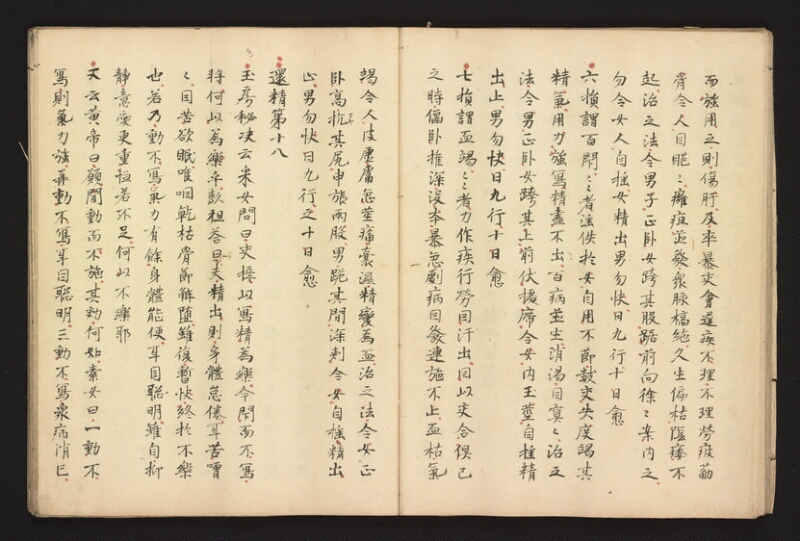 而強用之則傷肝及卒暴交會遲疾不理不理勞疲筋
骨令人目眠〻癰疽並發衆脉槁絶久生偏枯陰痿不
起治之法令男子正卧女跨其股踞前向徐〻案内之
勿令女人自搖女精出男勿快日九行十日愈
六損謂百閇〻〻者淫佚於女自用不節數交失度竭其
精氣用力強寫精盡不出百病並生消渴目冥〻治之
法令男正卧女跨其上前伏據席令女内玉莖自搖精
出止男勿快日九行十日愈
七損謂血竭〻〻者力作疾行勞因汗出因以交合俱已
之時偏卧推深没本暴急劇病因發連施不止血枯氣
竭令人皮虛膚急莖痛囊濕精變為血治之法令女正
卧高抗其尻申張兩股男跪其間深刺令女自搖精出
止男勿快日九行之十日愈
還精第十八
玉房秘决云采女問曰交接以寫精為樂今閇而不寫
將何以為樂乎彭祖答曰夫精出則身體怠倦耳苦嘈
〻目苦欲眠喉咽乾枯骨節解墮雖復暫快終於不樂
也若乃動不寫氣力有餘身體能便耳目聰明雖自抑
静意愛更重恒若不足何以不樂耶
又云黄帝曰願聞動而不施其効何如素女曰一動不
寫則氣力強再動不寫耳目聰明三動不寫衆病消已